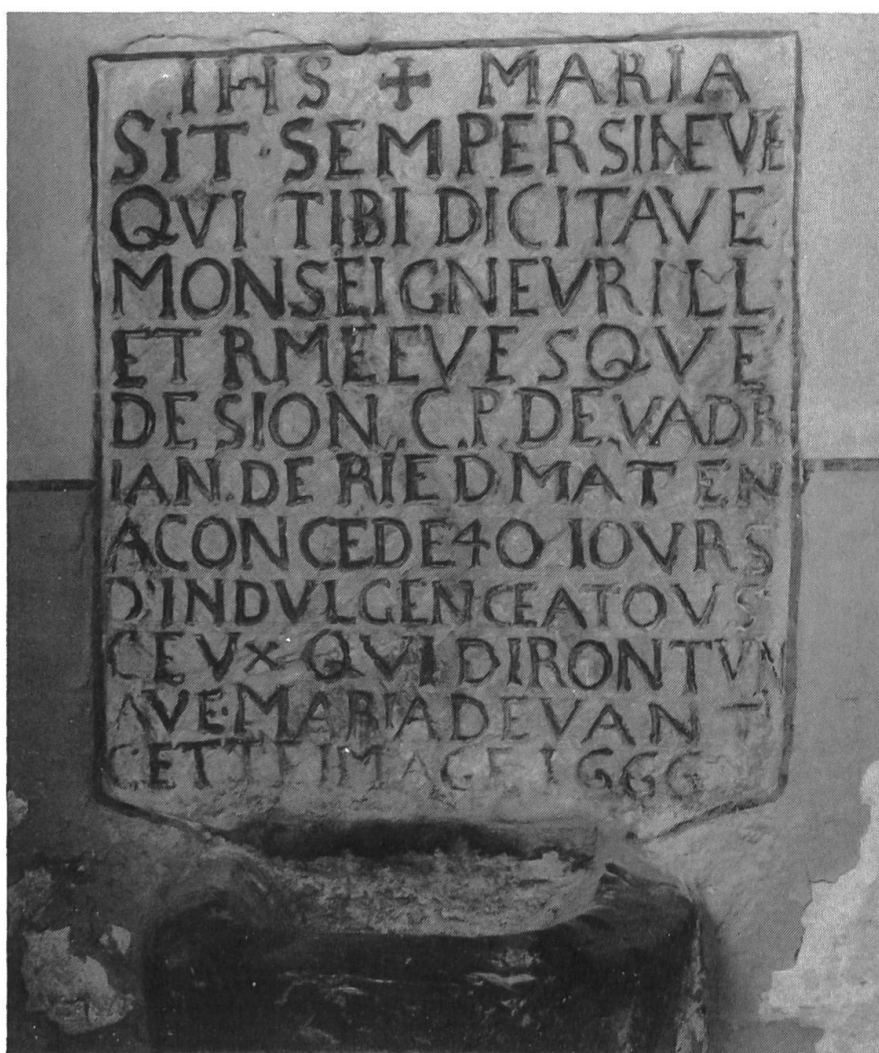 IHS + MARIA
SIT · SEMPER SINE VÆ
QVI TIBI DICIT AVE
MONSEIGNEVR ILL
ET RME EVESQVE
DE SION. C. P. DE. V ADR
IAN. DE RIEDMATEN
A CONCEDE 40 IOVRS
D'INDVLGENCE A TOVS
CEVX QVI DIRONT VN
AVE·MARIA DEVANT
CETTE IMAGE 1666